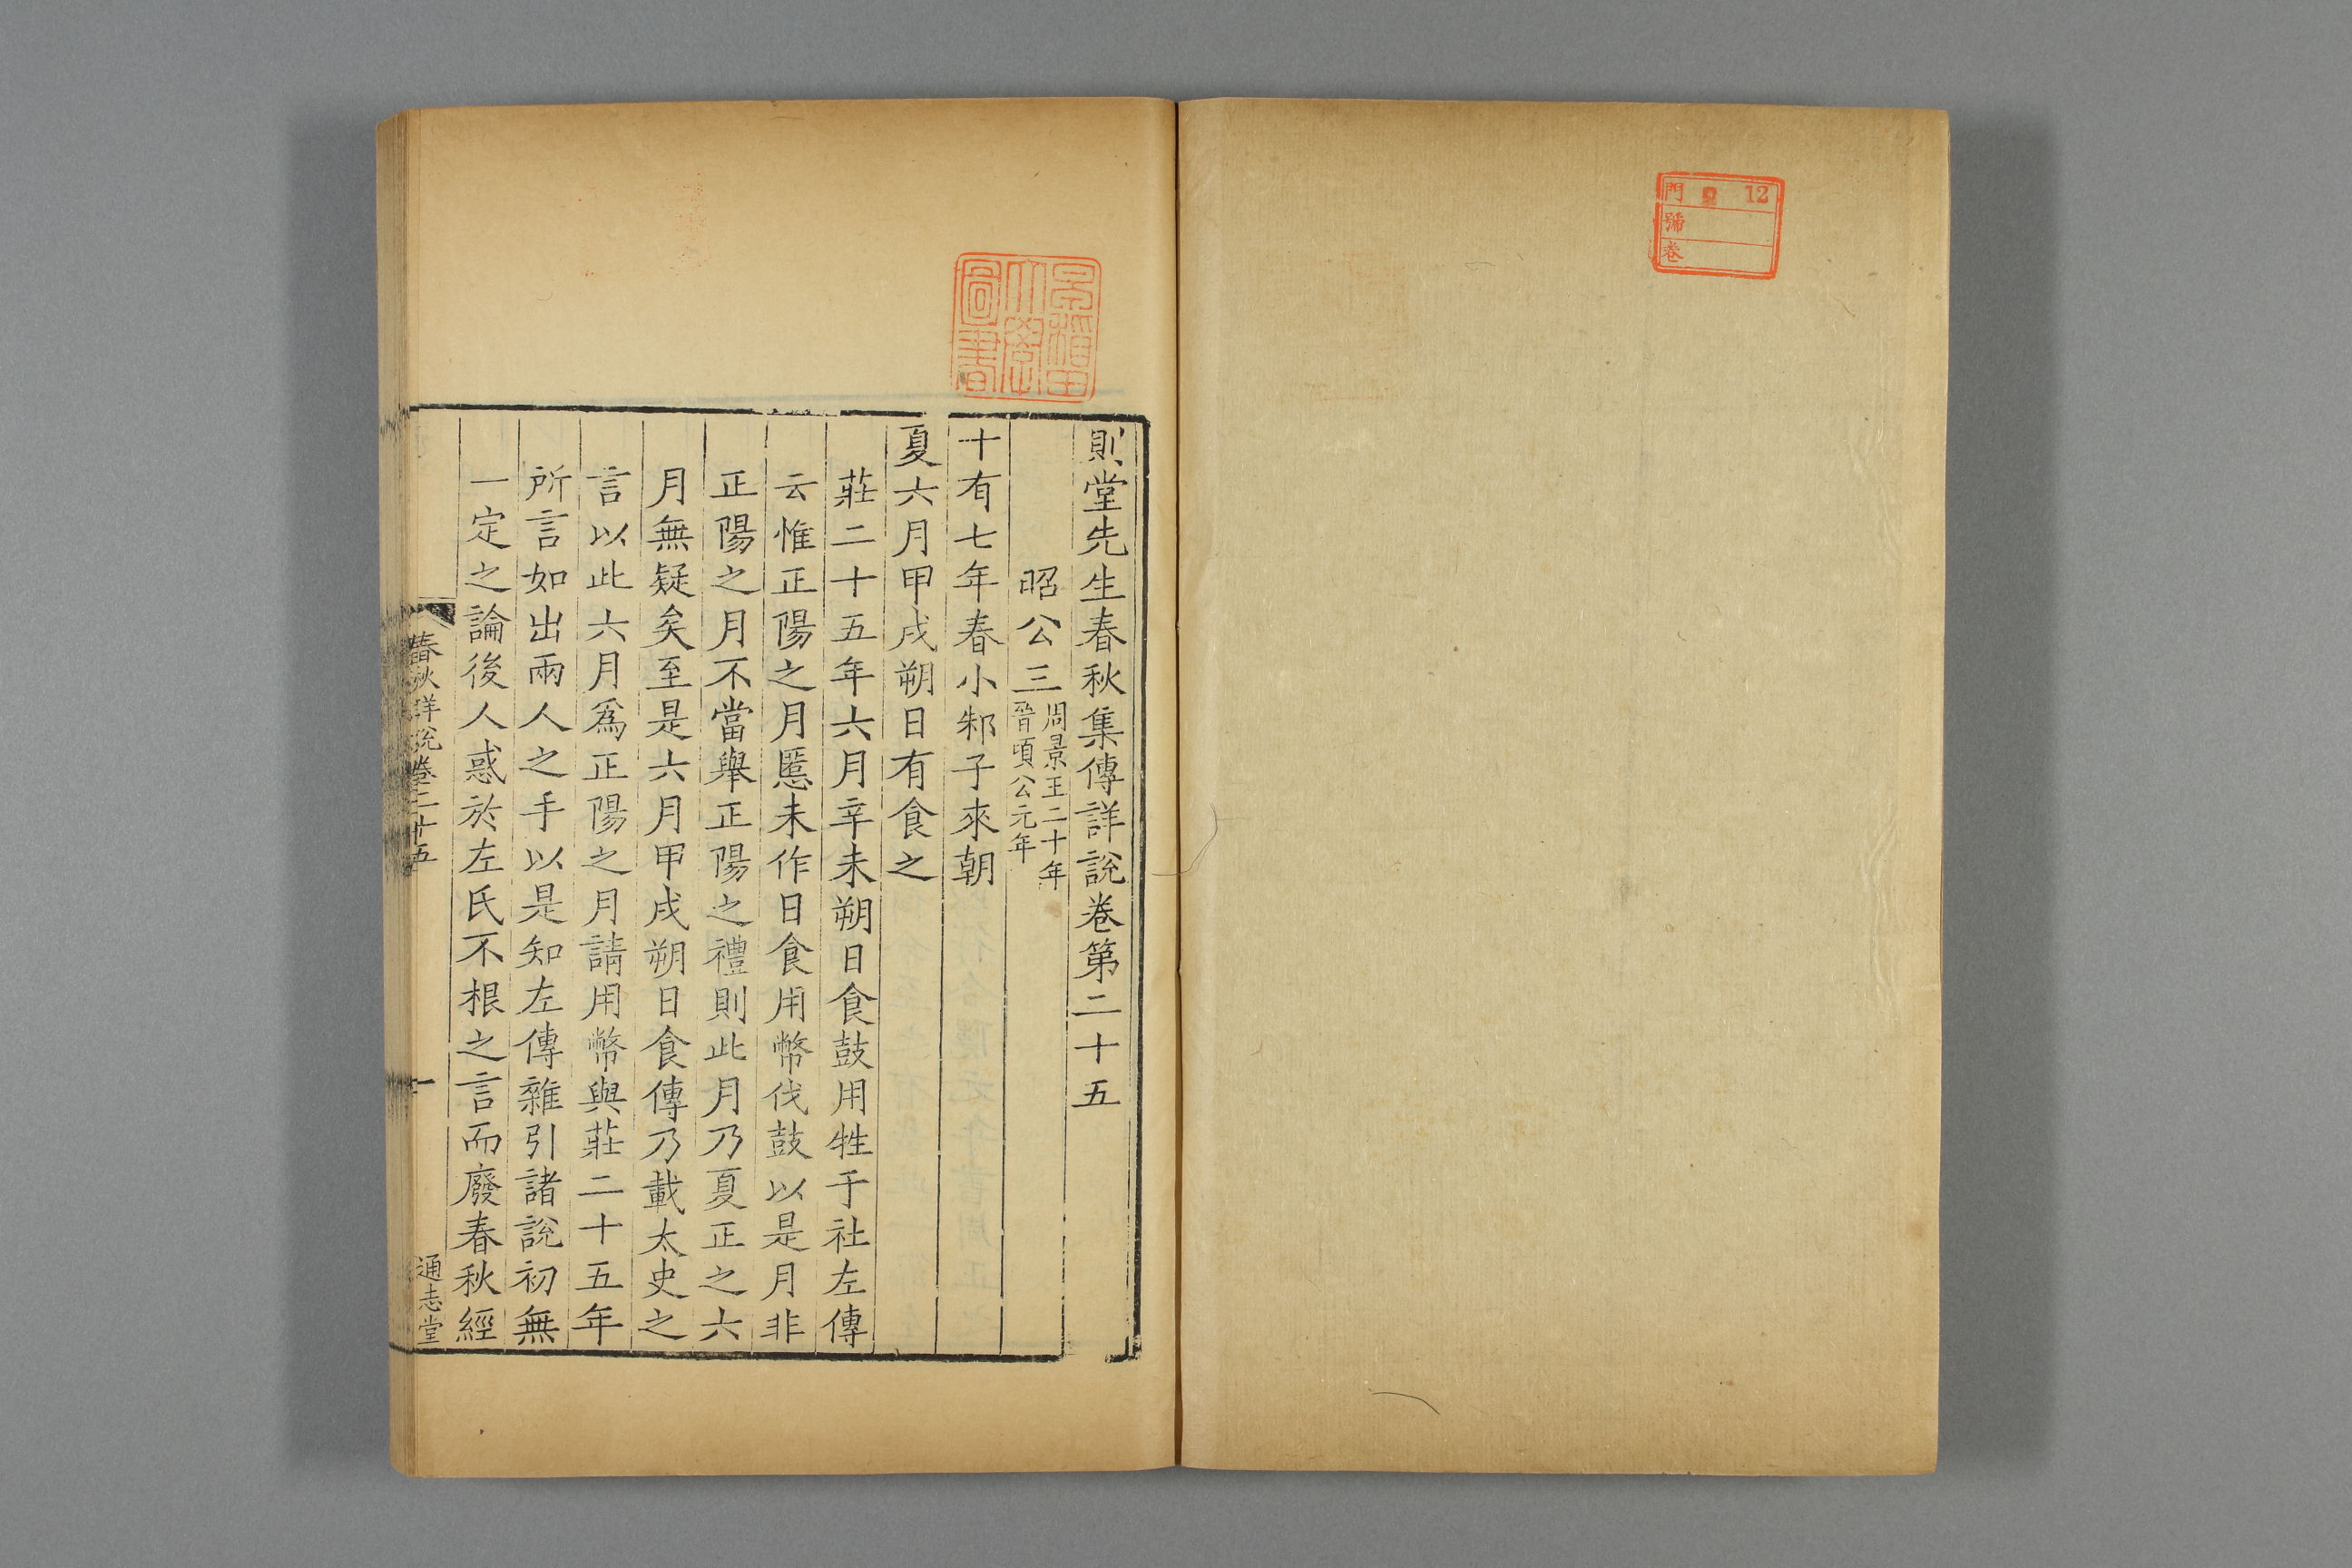 門 12
號
卷
早稻田大學圖書
則堂先生春秋集傳詳說卷第二十五
昭公三
周景王二十年
晉頃公元年
十有七年春小邾子來朝
夏六月甲戌朔日有食之
莊二十五年六月辛未朔日食鼓用牲于社左傳
云惟正陽之月慝未作日食用幣伐鼓以是月非
正陽之月不當舉正陽之禮則此月乃夏正之六
月無疑矣至是六月甲戌朔日食傳乃載太史之
言以此六月爲正陽之月請用幣與莊二十五年
所言如出兩人之手以是知左傳雜引諸說初無
一定之論後人惑於左氏不根之言而廢春秋經
春秋詳說卷二十五
一
通志堂